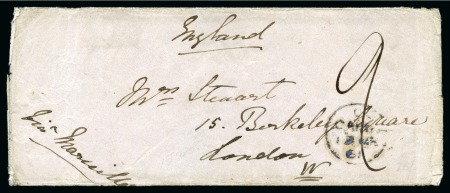 England
Mrs Steuart
15. Berkeley Square
London
W
Via Marseilles